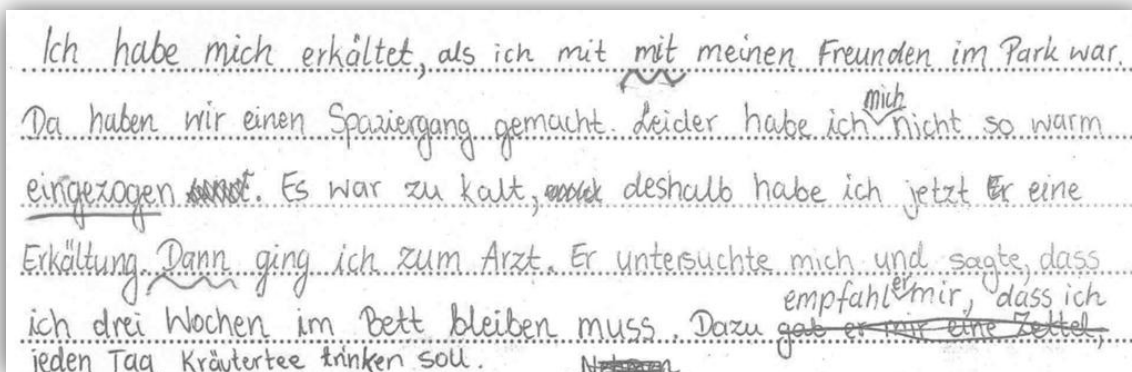 Ich habe mich erkältet, als ich mit mit meinen Freunden im Park war.
Da haben wir einen Spaziergang gemacht. Leider habe ich mich nicht so warm
eingezogen. Es war zu kalt, deshalb habe ich jetzt Er eine
Erkältung. Dann ging ich zum Arzt. Er untersuchte mich und sagte, dass
ich drei Wochen im Bett bleiben muss. Dazu empfahl er mir, dass ich
gab er mir eine Zettel,
jeden Tag Kräutertee trinken soll.